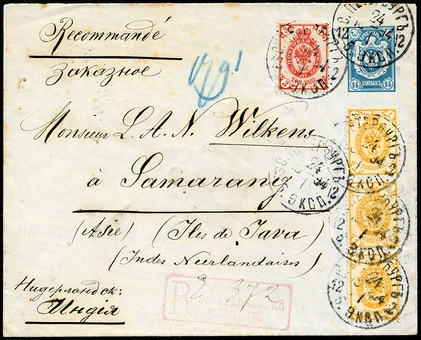 Recommandé
Заказное
Monsieur L. A. N. Wilkens
à Samarang
(Asie) (Iles de Java)
(Indes Néerlandaises)
Нидерландск:
Индія
R 372
С. ПЕТЕРБУРГЪ 2
24
1
94
ЭКСП.